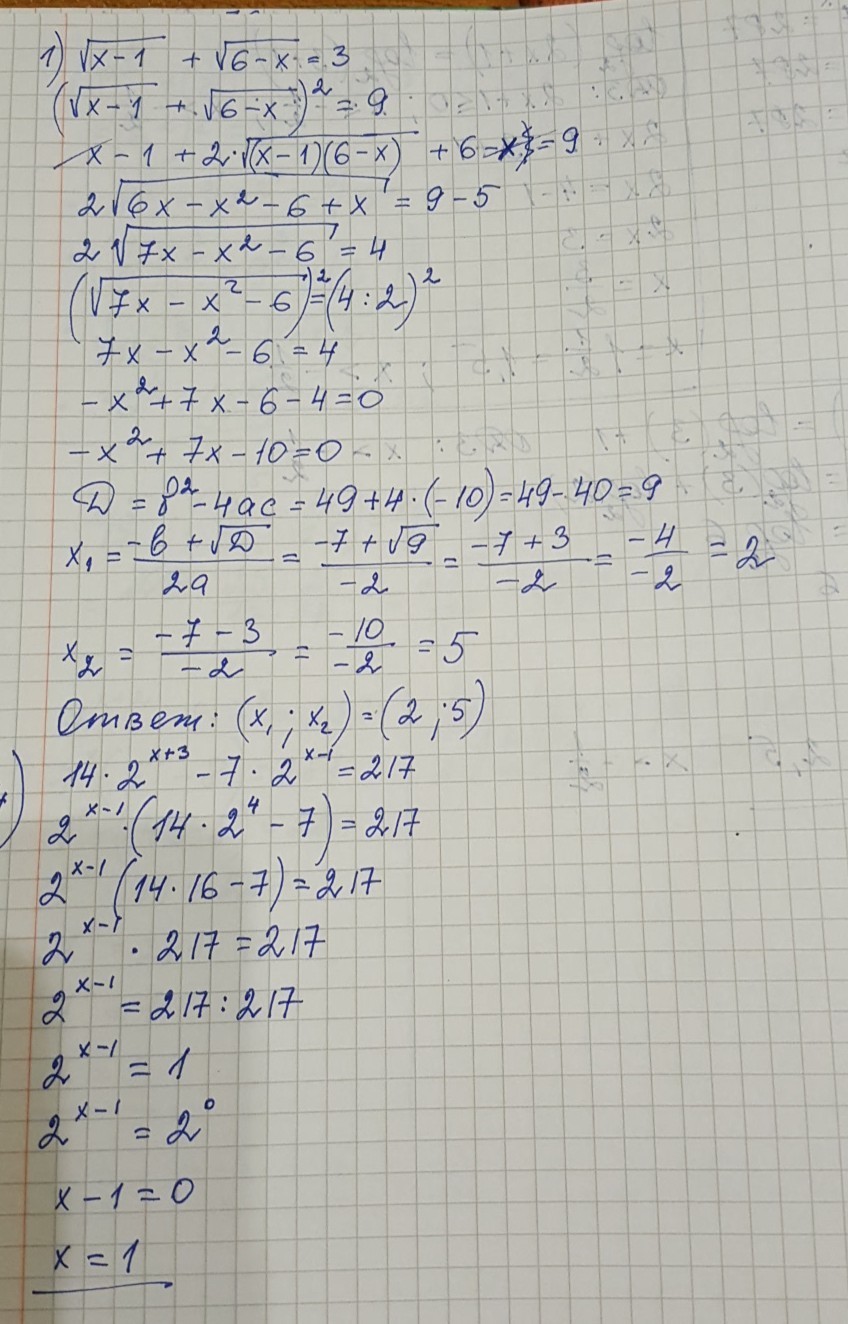 1) √(x-1) + √(6-x) = 3
(√(x-1) + √(6-x))² = 9
x - 1 + 2·√((x-1)(6-x)) + 6 - x = 9
2√(6x - x² - 6 + x) = 9 - 5
2√(7x - x² - 6) = 4
(√(7x - x² - 6))² = (4 : 2)²
7x - x² - 6 = 4
-x² + 7x - 6 - 4 = 0
-x² + 7x - 10 = 0
D = b² - 4ac = 49 + 4·(-10) = 49 - 40 = 9
x₁ = (-b + √D)/2a = (-7 + √9)/-2 = (-7 + 3)/-2 = -4/-2 = 2
x₂ = (-7 - 3)/-2 = -10/-2 = 5
Ответ: (x₁ ; x₂) = (2 ; 5)
14·2^(x+3) - 7·2^(x-1) = 217
2^(x-1)·(14·2⁴ - 7) = 217
2^(x-1) (14·16 - 7) = 217
2^(x-1) · 217 = 217
2^(x-1) = 217 : 217
2^(x-1) = 1
2^(x-1) = 2⁰
x - 1 = 0
x = 1